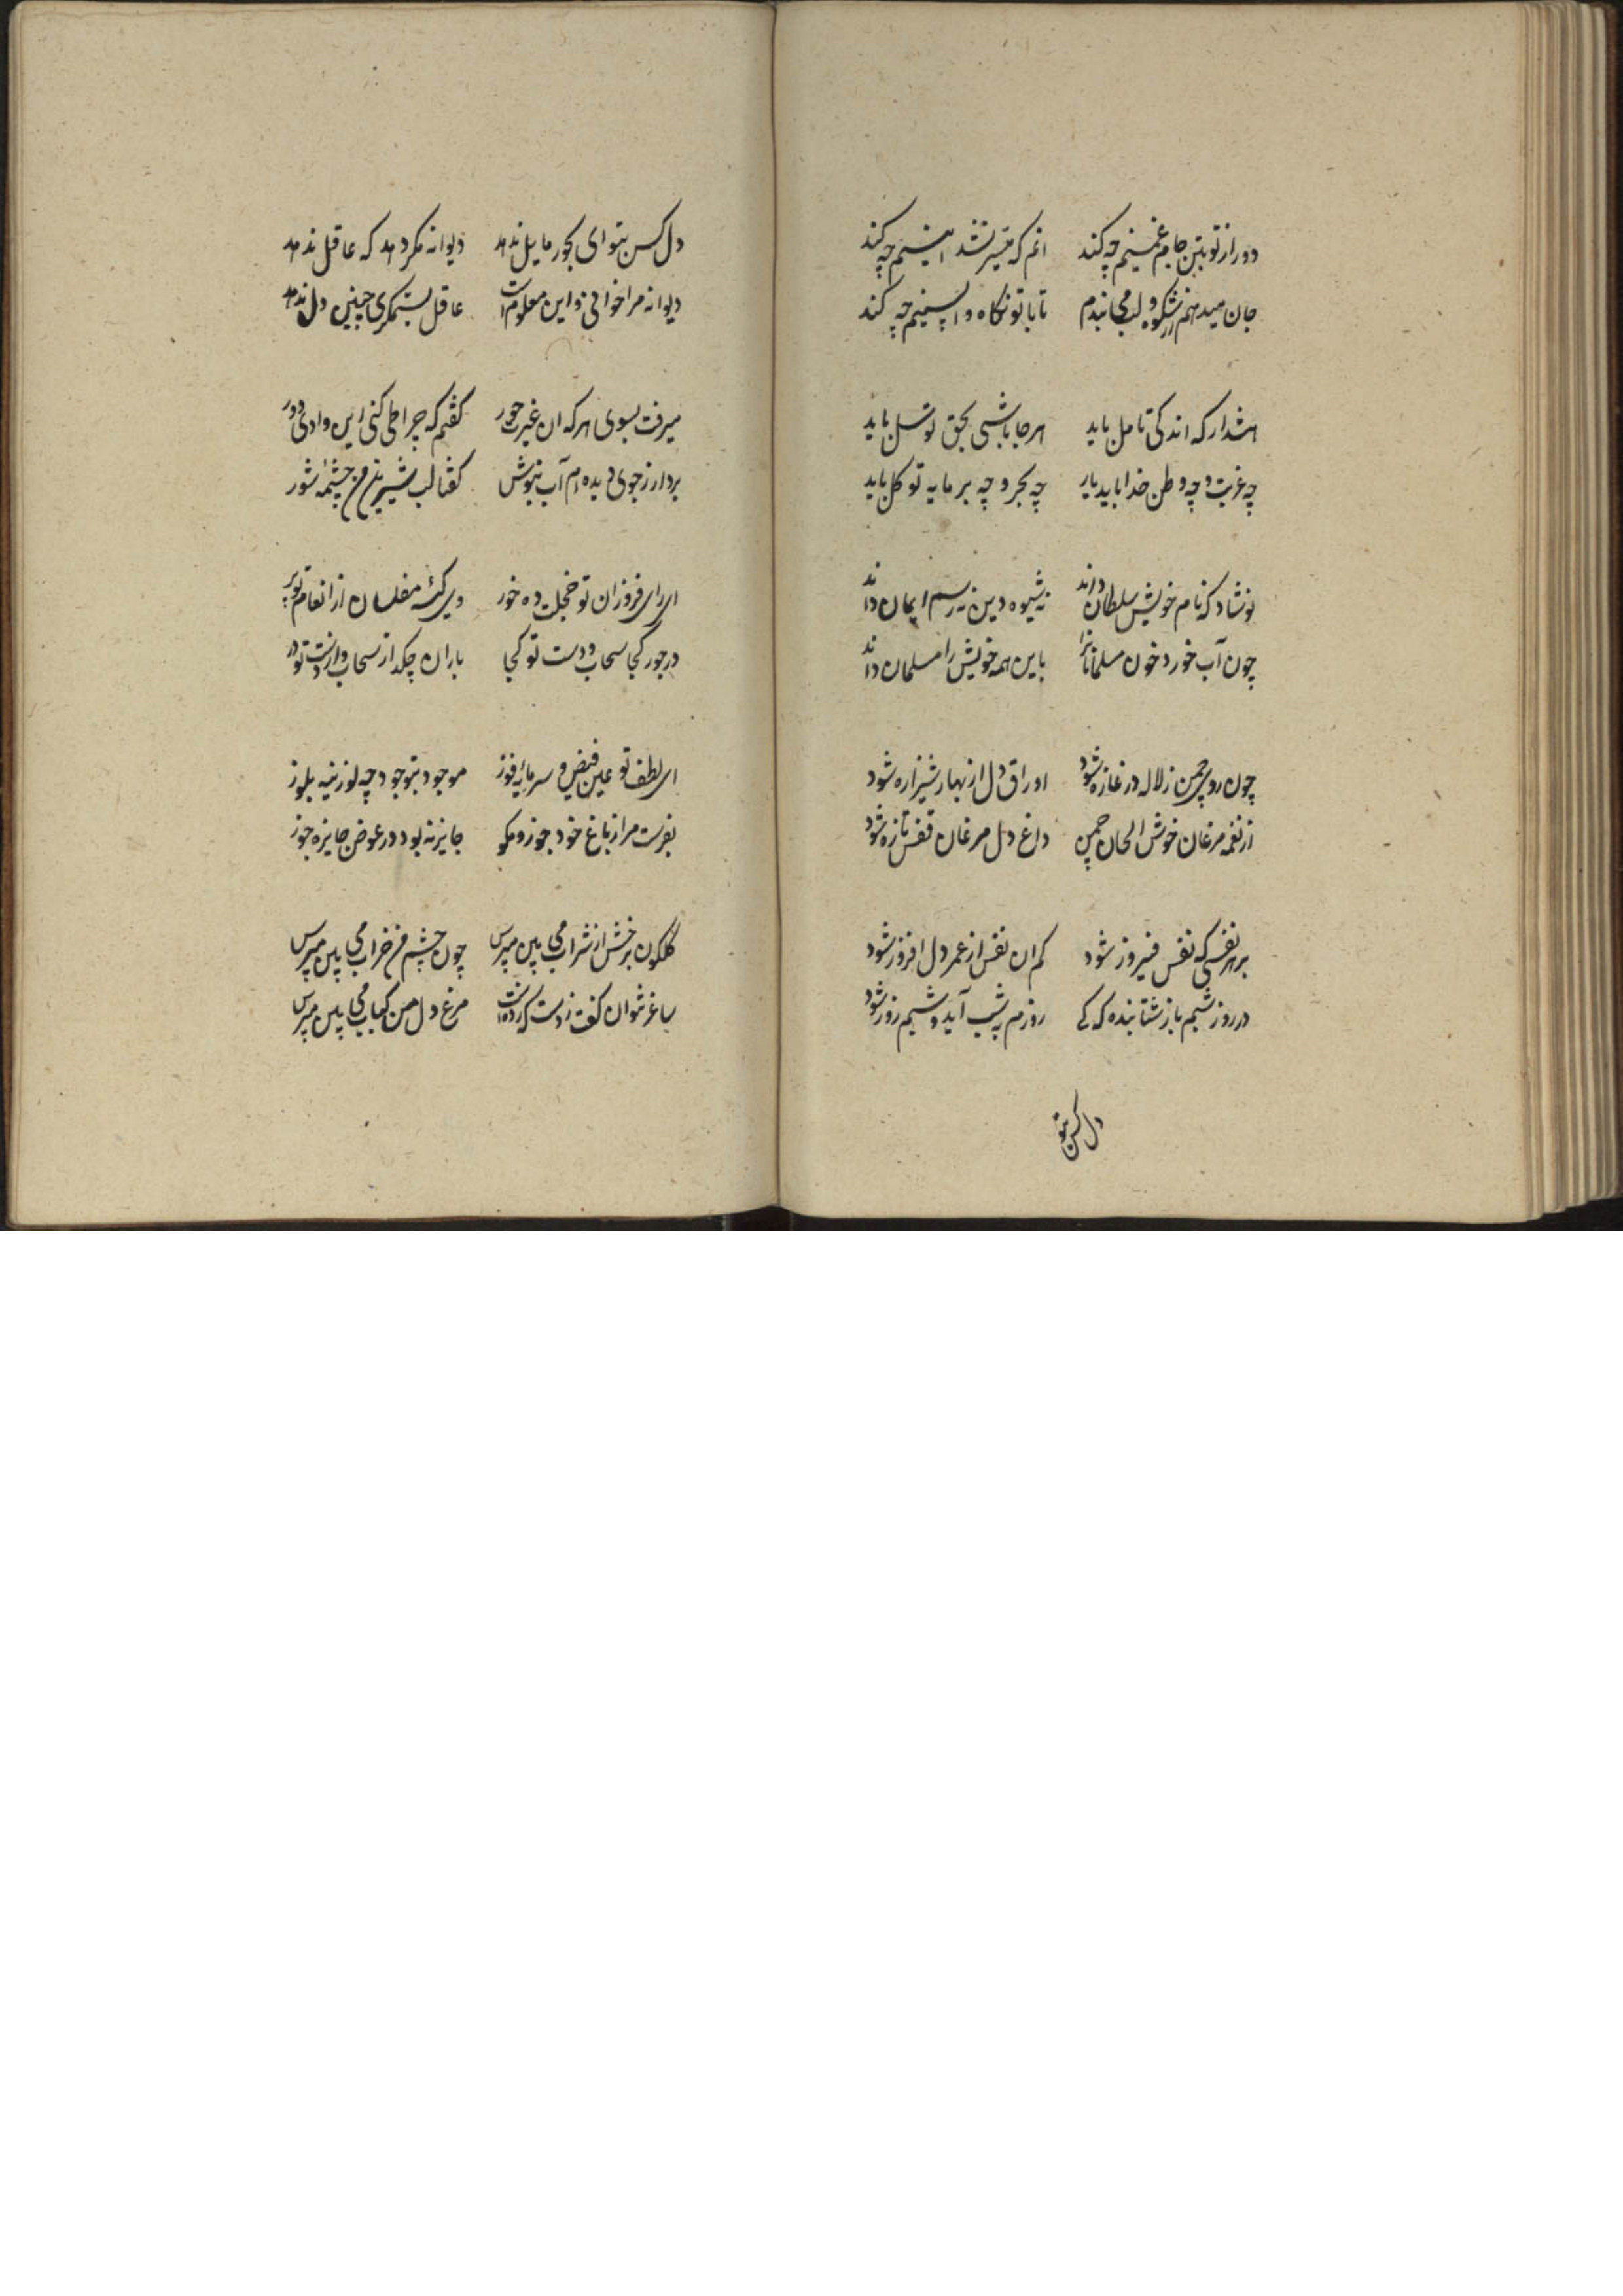 دور از تو بتن جان غمینم چه کند انم که میسر نشد اینیم چه کند
جان میدهم از شکوه لب می بندم تا با تو نکاه واپسینم چه کند
هشدار که اندکی تامل باید هر جا باشی بحق توسل باید
چه غربت و چه وطن خدا باید یار چه بحر و چه بر مایه توکل باید
نوشاد که نام خویش سلطان داند نه شیوه دین نه رسم ایمان داند
چون آب خورد خون مسلمانانرا با این همه خویش را مسلمان داند
چون روی چمن ز لاله در غازه شود اوراق دل از بهار شیرازه شود
از نغمه مرغان خوش الحان چمن داغ دل مرغان قفس تازه شود
بر هر نفسی که نفس فیروز شود کم ان نفس از عمر دل افروز شود
در روز شبم باز شتابنده که کی روزم به شب آید و شبم روز شود
دل کس بتو
دل کس بتو ای بجور مایل ندهد دیوانه مکر دهد که عاقل ندهد
دیوانه مرا خوانی و این معلوم است عاقل بستمکری چنین دل ندهد
میرفت بسوی هر که ان غیرت حور کفتم که چرا طی کنی این وادی دور
بردار ز جوی دیده ام آب بنوش کفتا لب شیرین من و چشمه شور
ای رای فروزان تو خجلت ده خور وی کیسه مفلسان از انعام تو پر
در جور کجا سحاب و دست تو کجا باران چکد از سحاب و از دست تو در
ای لطف تو عین فیض و سرمایه فوز موجود بتو جود چه لوزینه بلوز
بفرست مرا از باغ خود جوز و مکو جایز نه بود در عوض جایزه جوز
کلکون برخش از شراب می بین مپرس چون چشم من خراب می بین مپرس
ساغر نتوان کفت ز دست که زده است مرغ دل من کباب می بین مپرس